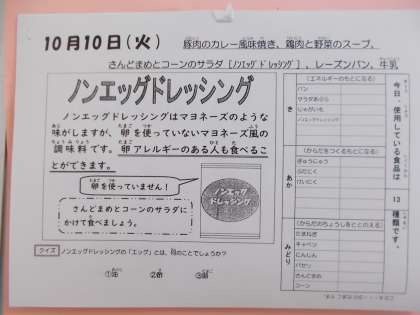 10月10日(火)
豚肉のカレー風味焼き、鶏肉と野菜のスープ、
さんどまめとコーンのサラダ[ノンエッグドレッシング]、レーズンパン、牛乳
ノンエッグドレッシング
ノンエッグドレッシングはマヨネーズのような
味がしますが、卵を使っていないマヨネーズ風の
調味料です。卵アレルギーのある人も食べるこ
とができます。
卵を使っていません!
さんどまめとコーンのサラダに
かけて食べましょう。
ノンエッグ
ドレッシング
クイズ
ノンエッグドレッシングの「エッグ」とは、何のことでしょうか?
①油
②酢
③卵
今日、使用している食品は
13
種類です。
き
(エネルギーのもとになる)
パン
サラダあぶら
じゃがいも
ノンエッグドレッシング
あか
(からだをつくるもとになる)
ぎゅうにゅう
ぶたにく
けいにく
みどり
(からだのちょうしをととのえる)
たまねぎ
キャベツ
にんじん
パセリ
さんどまめ
コーン